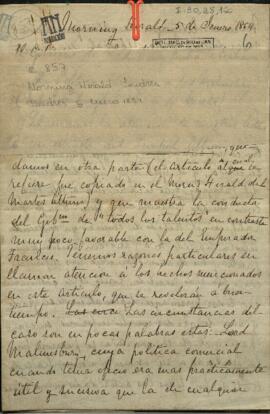 Morning Herald 5 de Enero 1854
I-30,25,12
e 857
Morning Herald Londres
Londres 5 enero 1854
damos en otra parte (el articulo a que se
refiere fue copiado en el Morn: Herald del
Martes ultimo) y que muestra la conducta
del Gobno de "todos los talentos" en contraste
muy poco favorable con la del Emperador
Frances. Tenemos razones particulares en
llamar atencion á los hechos mencionados
en este articulo, que se revolverán á buen
tiempo. Las circunstancias del
caso son en pocas palabras estas: Lord
Malmesbury, cuya politica comercial
cuando tenia oficio era mas prácticamente
util y sucesiva que la de cualquier